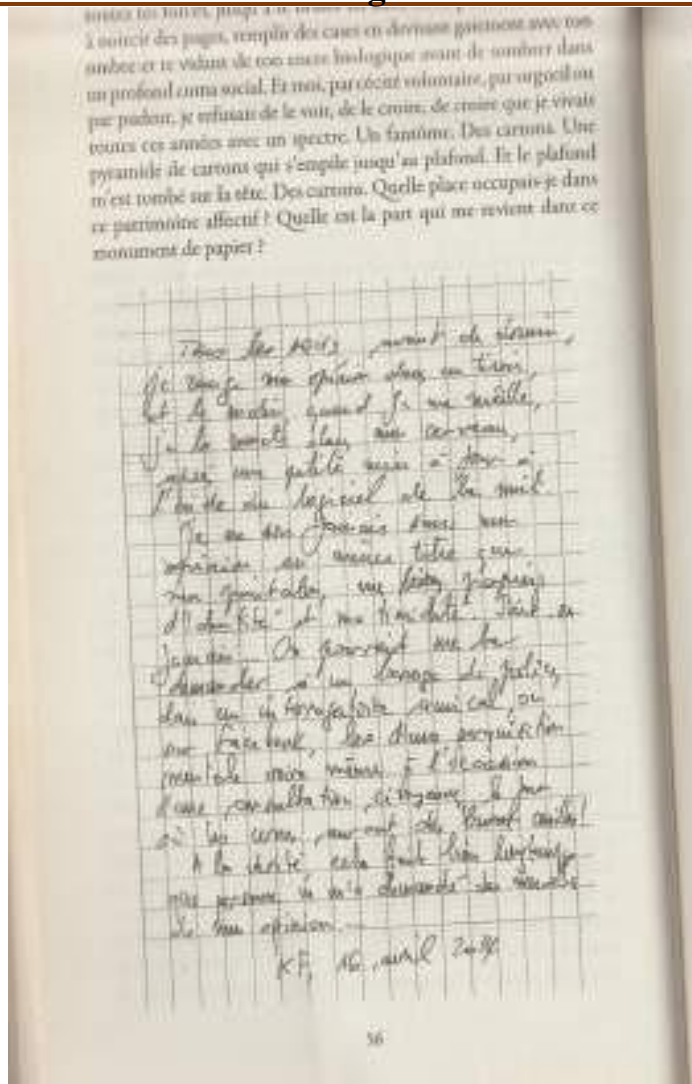 à noircir des pages, remplir des cases en devisant gaiement avec ton
ombre et te vidant de ton encre biologique avant de sombrer dans
un profond coma social. Et moi, par cécité volontaire, par orgueil ou
par pudeur, je refusais de le voir, de le croire, de croire que je vivais
toutes ces années avec un spectre. Un fantôme. Des cartons. Une
pyramide de cartons qui s'empile jusqu'au plafond. Et le plafond
m'est tombé sur la tête. Des cartons. Quelle place occupais-je dans
ce patrimoine affectif ? Quelle est la part qui me revient dans ce
monument de papier ?
Tous les soirs, avant de dormir,
je range mon opinion dans un tiroir,
et le matin, quand je me réveille,
je la remets dans mon cerveau,
après une petite mise à jour à
l'aide du logiciel de la nuit.
Je ne sors jamais sans mon
opinion au même titre que
mes papiers
d'identité et ma timidité. Sait-on
jamais. On pourrait me la
demander à un barrage de police,
dans un interrogatoire amical, ou
sur Facebook, lors d'une perquisition
mentale voire même à l'occasion
d'une consultation citoyenne, le jour
où les urnes auront
A la vérité, cela fait bien longtemps
que personne ne m'a demandé des nouvelles
de mon opinion.
KF, 16 avril
56